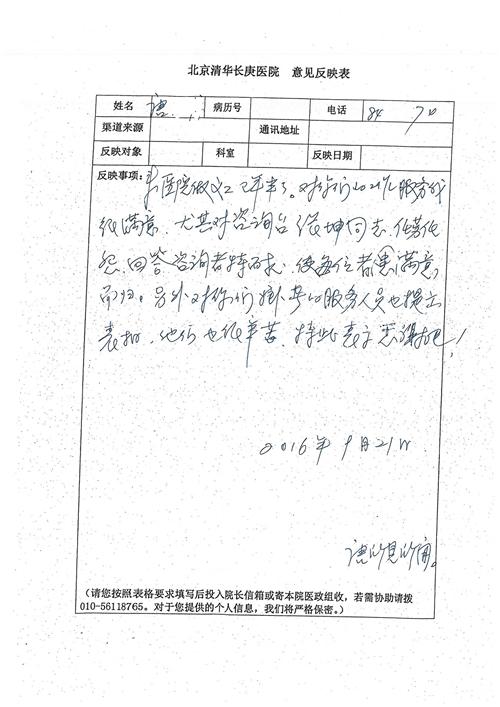 北京清华长庚医院 意见反映表
姓名 唐 病历号 电话 84 70
渠道来源 通讯地址
反映对象 科室 反映日期
反映事项: 来医院做义工已半年了。对你们的工作服务我
很满意。尤其对咨询台 坤同志.任劳任
怨.回答咨询者特耐心.使每位患者满意
而归。另外对你们挂号的服务人员也提出
表扬.他们也很辛苦.特此表示感谢吧!
2016年9月21日
唐 所见所闻。
(请您按照表格要求填写后投入院长信箱或寄本院医政组收,若需协助请拨
010-56118765。对于您提供的个人信息,我们将严格保密。)